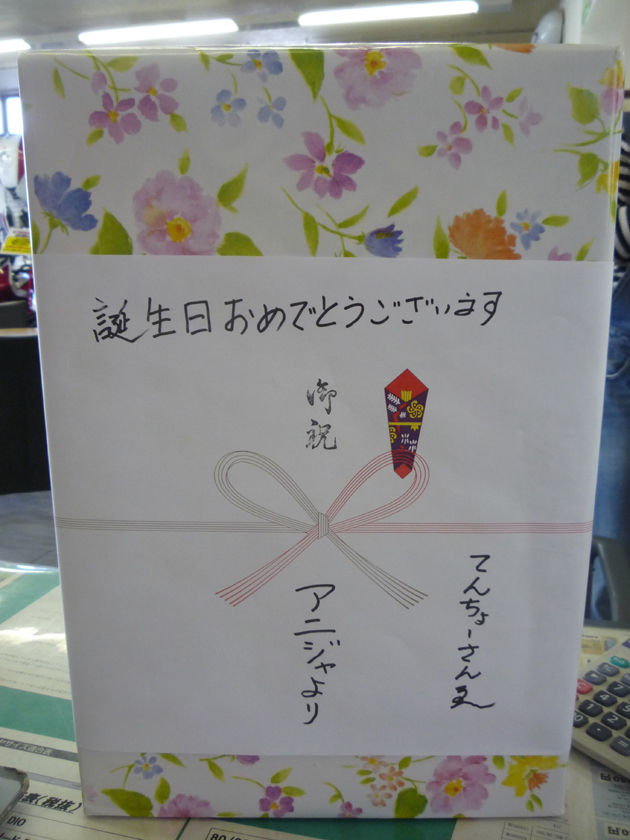 誕生日おめでとうございます
御祝
てんちょーさんゑ
アニジャより
DIO